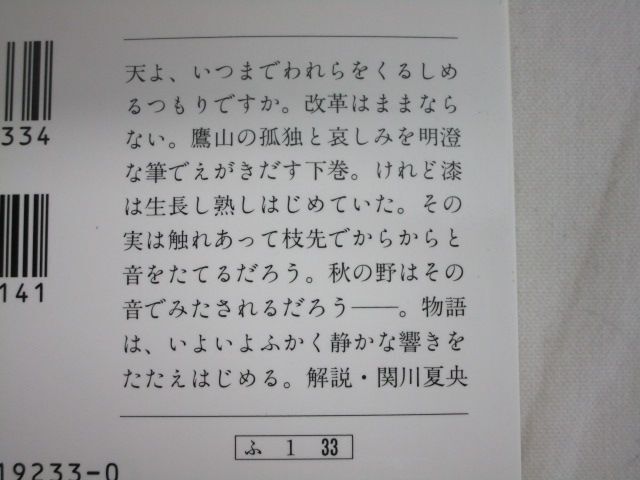 天よ、いつまでわれらをくるしめ
るつもりですか。改革はままなら
ない。鷹山の孤独と哀しみを明澄
な筆でえがきだす下巻。けれど漆
は生長し熟しはじめていた。その
実は触れあって枝先でからからと
音をたてるだろう。秋の野はその
音でみたされるだろう――。物語
は、いよいよふかく静かな響きを
たたえはじめる。解説・関川夏央
ふ 1 33
334
141
19233-0